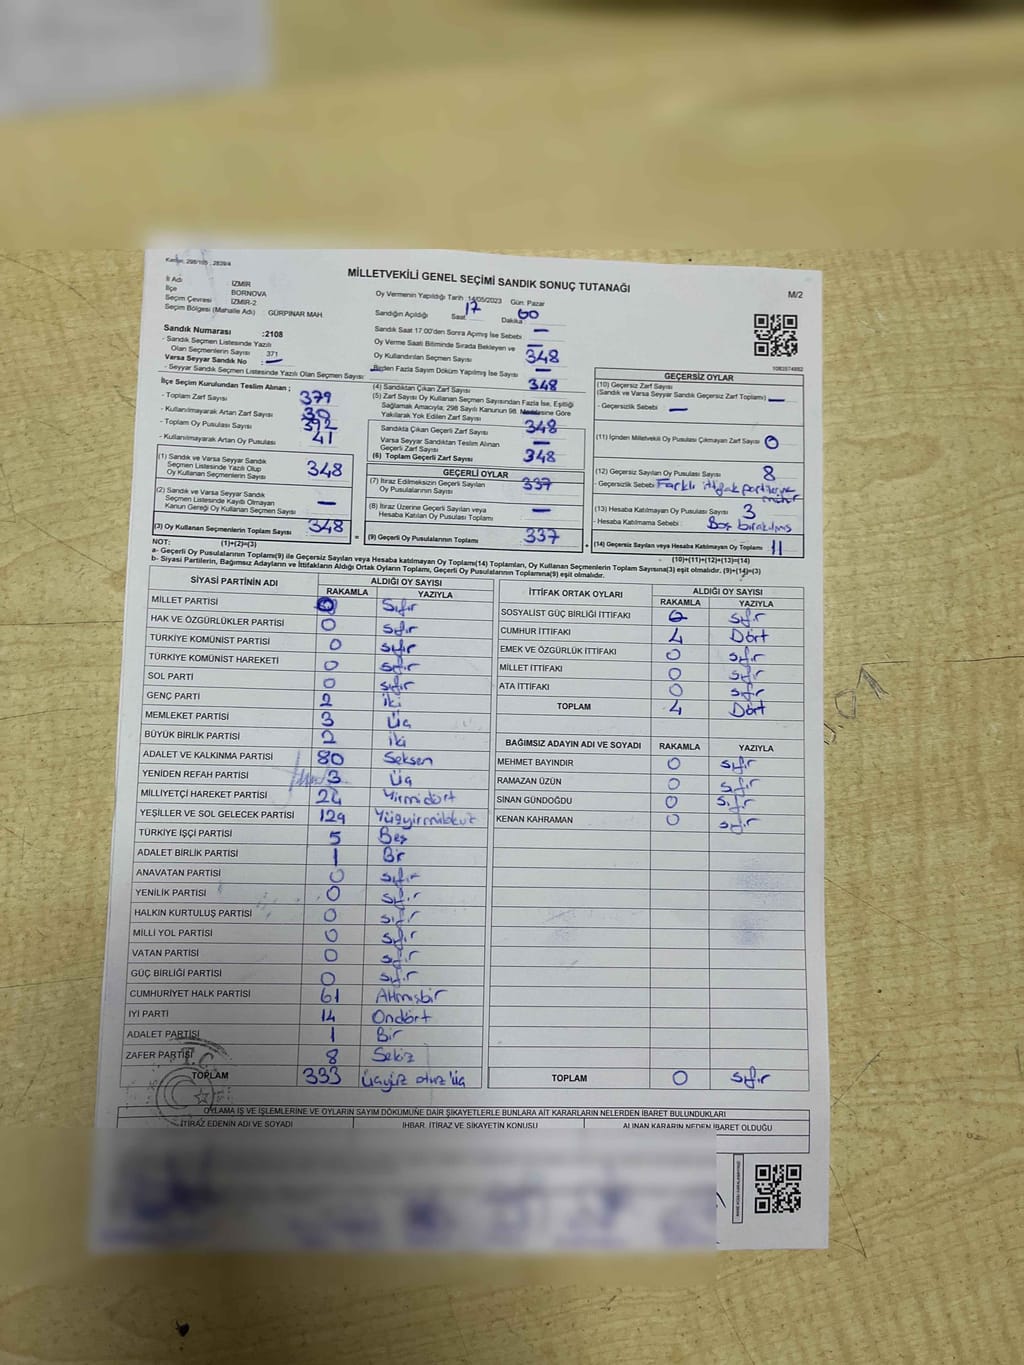 Kanun: 298/105 , 2839/4
MİLLETVEKİLİ GENEL SEÇİMİ SANDIK SONUÇ TUTANAĞI
M/2
İl Adı : İZMİR
İlçe BORNOVA
Seçim Çevresi İZMİR-2
Seçim Bölgesi (Mahalle Adı) GÜRPINAR MAH.
Oy Vermenin Yapıldığı Tarih :14/05/2023 Gün: Pazar
Sandığın Açıldığı Saat 17 Dakika 00
Sandık Numarası :2108
- Sandık Seçmen Listesinde Yazılı
Olan Seçmenlerin Sayısı 371
Varsa Seyyar Sandık No —
- Seyyar Seçmen Listesinde Yazılı Olan Seçmen Sayısı
Sandık Saat 17.00'den Sonra Açılmış İse Sebebi —
Oy Verme Saati Bitiminde Sırada Bekleyen ve —
Oy Kullandırılan Seçmen Sayısı 348
Birden Fazla Sayım Döküm Yapılmış İse Sayısı —
İlçe Seçim Kurulundan Teslim Alınan ;
- Toplam Zarf Sayısı 379
- Kullanılmayarak Artan Zarf Sayısı 30
- Toplam Oy Pusulası Sayısı 392
- Kullanılmayarak Artan Oy Pusulası 41
(1) Sandık ve Varsa Seyyar Sandık
Seçmen Listesinde Yazılı Olup
Oy Kullanan Seçmenlerin Sayısı 348
(2) Sandık ve Varsa Seyyar Sandık
Seçmen Listesinde Kayıtlı Olmayan
Kanun Gereği Oy Kullanan Seçmen Sayısı —
(3) Oy Kullanan Seçmenlerin Toplam Sayısı 348
(1)+(2)=(3)
(4) Sandıktan Çıkan Zarf Sayısı 348
(5) Zarf Sayısı Oy Kullanan Seçmen Sayısından Fazla İse, Eşitliği
Sağlamak Amacıyla; 298 Sayılı Kanunun 98. Maddesine Göre
Yakılarak Yok Edilen Zarf Sayısı
Sandıkta Çıkan Geçerli Zarf Sayısı 348
Varsa Seyyar Sandıktan Teslim Alınan
Geçerli Zarf Sayısı —
(6) Toplam Geçerli Zarf Sayısı 348
GEÇERLİ OYLAR
(7) İtiraz Edilmeksizin Geçerli Sayılan
Oy Pusulalarının Sayısı 337
(8) İtiraz Üzerine Geçerli Sayılan veya
Hesaba Katılan Oy Pusulası Toplamı —
= (9) Geçerli Oy Pusulalarının Toplamı 337
GEÇERSİZ OYLAR
(10) Geçersiz Zarf Sayısı
(Sandık ve Varsa Seyyar Sandık Geçersiz Zarf Toplamı) —
- Geçersizlik Sebebi —
(11) İçinden Milletvekili Oy Pusulası Çıkmayan Zarf Sayısı 0
(12) Geçersiz Sayılan Oy Pusulası Sayısı 8
- Geçersizlik Sebebi Farklı ittifak partilerine
mühür
(13) Hesaba Katılmayan Oy Pusulası Sayısı 3
- Hesaba Katılmama Sebebi : Boş bırakılmış
+ (14) Geçersiz Sayılan veya Hesaba Katılmayan Oy Toplamı 11
(10)+(11)+(12)+(13)=(14)
NOT:
a- Geçerli Oy Pusulalarının Toplamı(9) ile Geçersiz Sayılan veya Hesaba katılmayan Oy Toplamı(14) Toplamları, Oy Kullanan Seçmenlerin Toplam Sayısına(3) eşit olmalıdır. (9)+(14)=(3)
b- Siyasi Partilerin, Bağımsız Adayların ve İttifakların Aldığı Ortak Oyların Toplamı, Geçerli Oy Pusulalarının Toplamına(9) eşit olmalıdır.
SİYASİ PARTİNİN ADI ALDIĞI OY SAYISI
RAKAMLA YAZIYLA
MİLLET PARTİSİ 0 Sıfır
HAK VE ÖZGÜRLÜKLER PARTİSİ 0 sıfır
TÜRKİYE KOMÜNİST PARTİSİ 0 sıfır
TÜRKİYE KOMÜNİST HAREKETİ 0 sıfır
SOL PARTİ 0 sıfır
GENÇ PARTİ 2 iki
MEMLEKET PARTİSİ 3 Üç
BÜYÜK BİRLİK PARTİSİ 2 iki
ADALET VE KALKINMA PARTİSİ 80 Seksen
YENİDEN REFAH PARTİSİ 3 Üç
MİLLİYETÇİ HAREKET PARTİSİ 24 Yirmidört
YEŞİLLER VE SOL GELECEK PARTİSİ 129 Yüzyirmidokuz
TÜRKİYE İŞÇİ PARTİSİ 5 Beş
ADALET BİRLİK PARTİSİ 1 Bir
ANAVATAN PARTİSİ 0 sıfır
YENİLİK PARTİSİ 0 sıfır
HALKIN KURTULUŞ PARTİSİ 0 sıfır
MİLLİ YOL PARTİSİ 0 sıfır
VATAN PARTİSİ 0 sıfır
GÜÇ BİRLİĞİ PARTİSİ 0 sıfır
CUMHURİYET HALK PARTİSİ 61 Altmışbir
İYİ PARTİ 14 Ondört
ADALET PARTİSİ 1 Bir
ZAFER PARTİSİ 8 Sekiz
TOPLAM 333 üçyüz otuz üç
T.C.
İTTİFAK ORTAK OYLARI ALDIĞI OY SAYISI
RAKAMLA YAZIYLA
SOSYALİST GÜÇ BİRLİĞİ İTTİFAKI 0 sıfır
CUMHUR İTTİFAKI 4 Dört
EMEK VE ÖZGÜRLÜK İTTİFAKI 0 sıfır
MİLLET İTTİFAKI 0 sıfır
ATA İTTİFAKI 0 sıfır
TOPLAM 4 Dört
BAĞIMSIZ ADAYIN ADI VE SOYADI RAKAMLA YAZIYLA
MEHMET BAYINDIR 0 sıfır
RAMAZAN ÜZÜN 0 sıfır
SİNAN GÜNDOĞDU 0 sıfır
KENAN KAHRAMAN 0 sıfır
TOPLAM 0 sıfır
OYLAMA İŞ VE İŞLEMLERİNE VE OYLARIN SAYIM DÖKÜMÜNE DAİR ŞİKAYETLERLE BUNLARA AİT KARARLARIN NELERDEN İBARET BULUNDUKLARI
İTİRAZ EDENİN ADI VE SOYADI İHBAR, İTİRAZ VE ŞİKAYETİN KONUSU ALINAN KARARIN NEDEN İBARET OLDUĞU